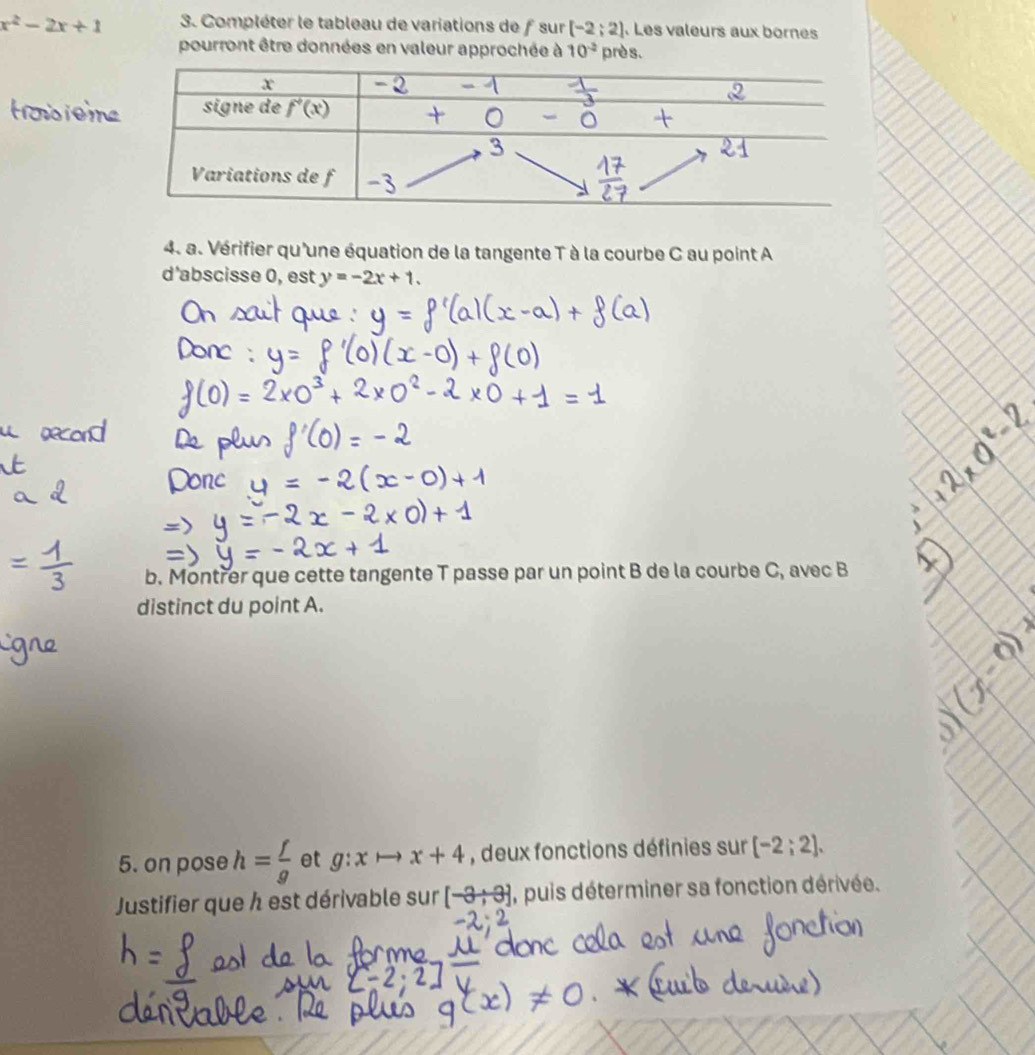 x² − 2x + 1
3. Compléter le tableau de variations de f sur [−2 ; 2]. Les valeurs aux bornes
pourront être données en valeur approchée à 10⁻² près.
x -2 -1 1/3 2
troisième
signe de f'(x) + 0 - 0 +
Variations de f -3 3 17/27 21
4. a. Vérifier qu'une équation de la tangente T à la courbe C au point A
d'abscisse 0, est y = −2x + 1.
On sait que : y = f'(a)(x-a) + f(a)
Donc : y = f'(0)(x-0) + f(0)
f(0) = 2×0³ + 2×0² - 2×0 + 1 = 1
u second
De plus f'(0) = -2
Donc y = -2(x-0)+1
a 2
=> y = -2x - 2×0) + 1
=> y = -2x + 1
= 1/3
b. Montrer que cette tangente T passe par un point B de la courbe C, avec B
distinct du point A.
igne
+2×0²-2
5. on pose h = f/g et g: x ↦ x + 4 , deux fonctions définies sur [−2 ; 2].
Justifier que h est dérivable sur [−3 ; 3], puis déterminer sa fonction dérivée.
-2;2
h = f/g est de la forme u/v donc cela est une fonction
dérivable sur [-2;2]. De plus g(x) ≠ 0. * (suite derrière)